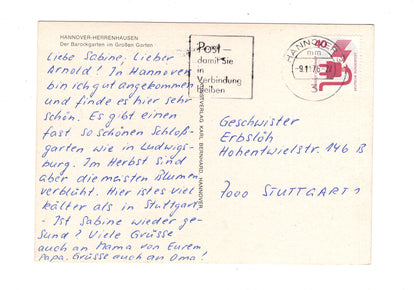 HANNOVER-HERRENHAUSEN
Der Barockgarten im Großen Garten
Liebe Sabine, Lieber
Arnold! In Hannover
bin ich gut angekommen
und finde es hier sehr
schön. Es gibt einen
fast so schönen Schloß-
garten wie in Ludwigs-
burg. Im Herbst sind
aber die meisten Blumen
verblüht. Hier ist es viel
kälter als in Stuttgart.
- Ist Sabine wieder ge-
sund? Viele Grüsse
auch an Mama von Eurem
Papa. Grüsse auch an Oma!
KUNSTVERLAG KARL BERNHARD, HANNOVER
Post -
damit Sie
in
Verbindung
bleiben
HANNOVER
mm
3
40
Geschwister
Erbslöh
Hohentwielstr. 146 B
7000 STUTTGART 1